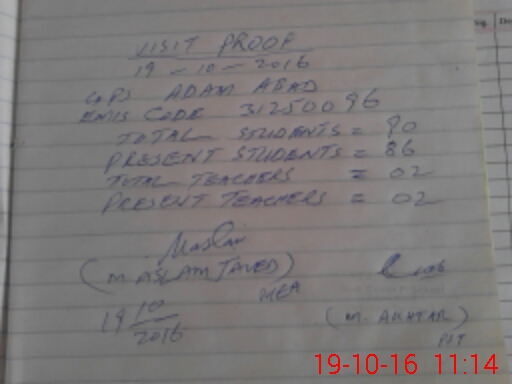 VISIT PROOF
19-10-2016
GPS ADAM ABAD
EMIS CODE 31250096
TOTAL STUDENTS = 90
PRESENT STUDENTS = 86
TOTAL TEACHERS = 02
PRESENT TEACHERS = 02
Maslam
(M. ASLAM JAVED)
MEA
19 10/2016
(M. AKHTAR)
PST
19-10-16 11:14